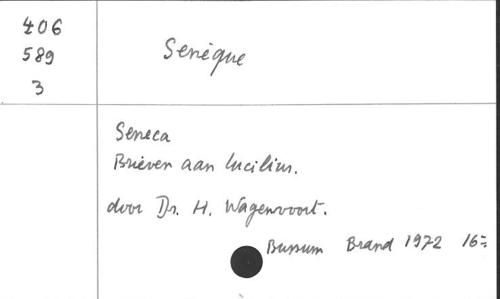 406
589
3
Senèque
Seneca
Brieven aan Lucilius.
door Dr. H. Wagenvoort.
Bussum Brand 1972 16=